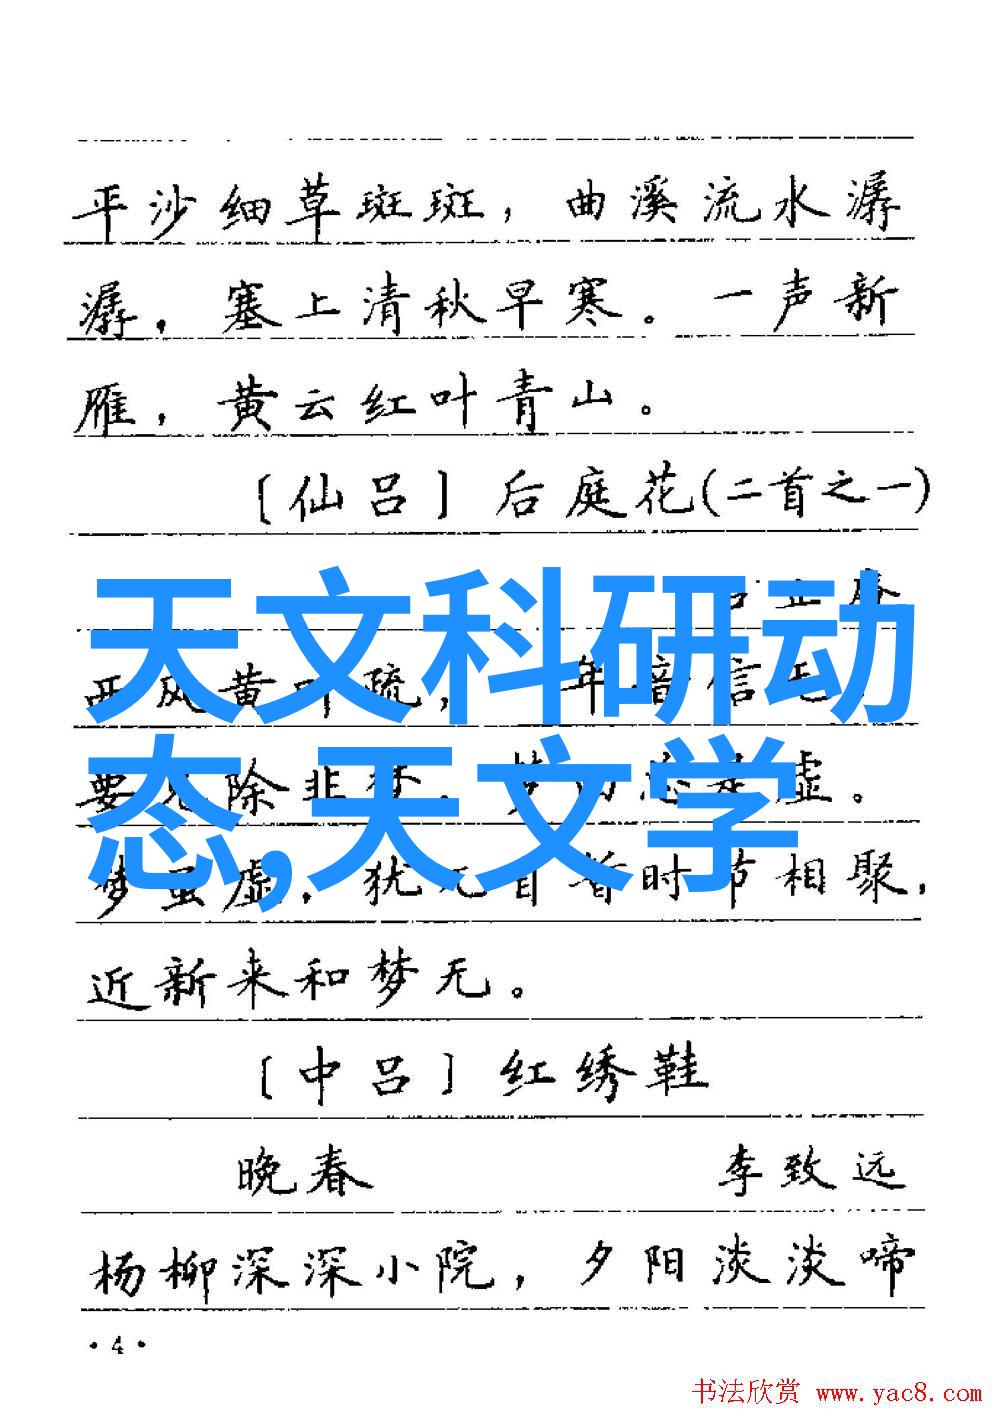 平沙细草斑斑，曲溪流水潺
潺，塞上清秋早寒。一声新
雁，黄云红叶青山。
〔仙吕〕后庭花(二首之一)
天文科研动
态,天文学
西风黄叶疏，年音信无
要见除非梂，梦回总是虚。
梦虽虚，犹兀自暂时节相聚，
近新来和梦无。
〔中吕〕红绣鞋
晚春 李致远
杨柳深深小院，夕阳淡淡啼
·4·
书法欣赏 www.yac8.com